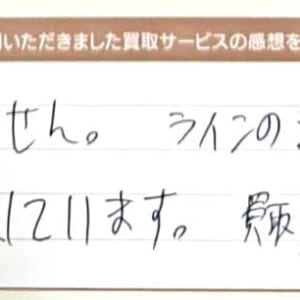 いただきました買取サービスの感想を
せん。 ラインの
ています。 買取